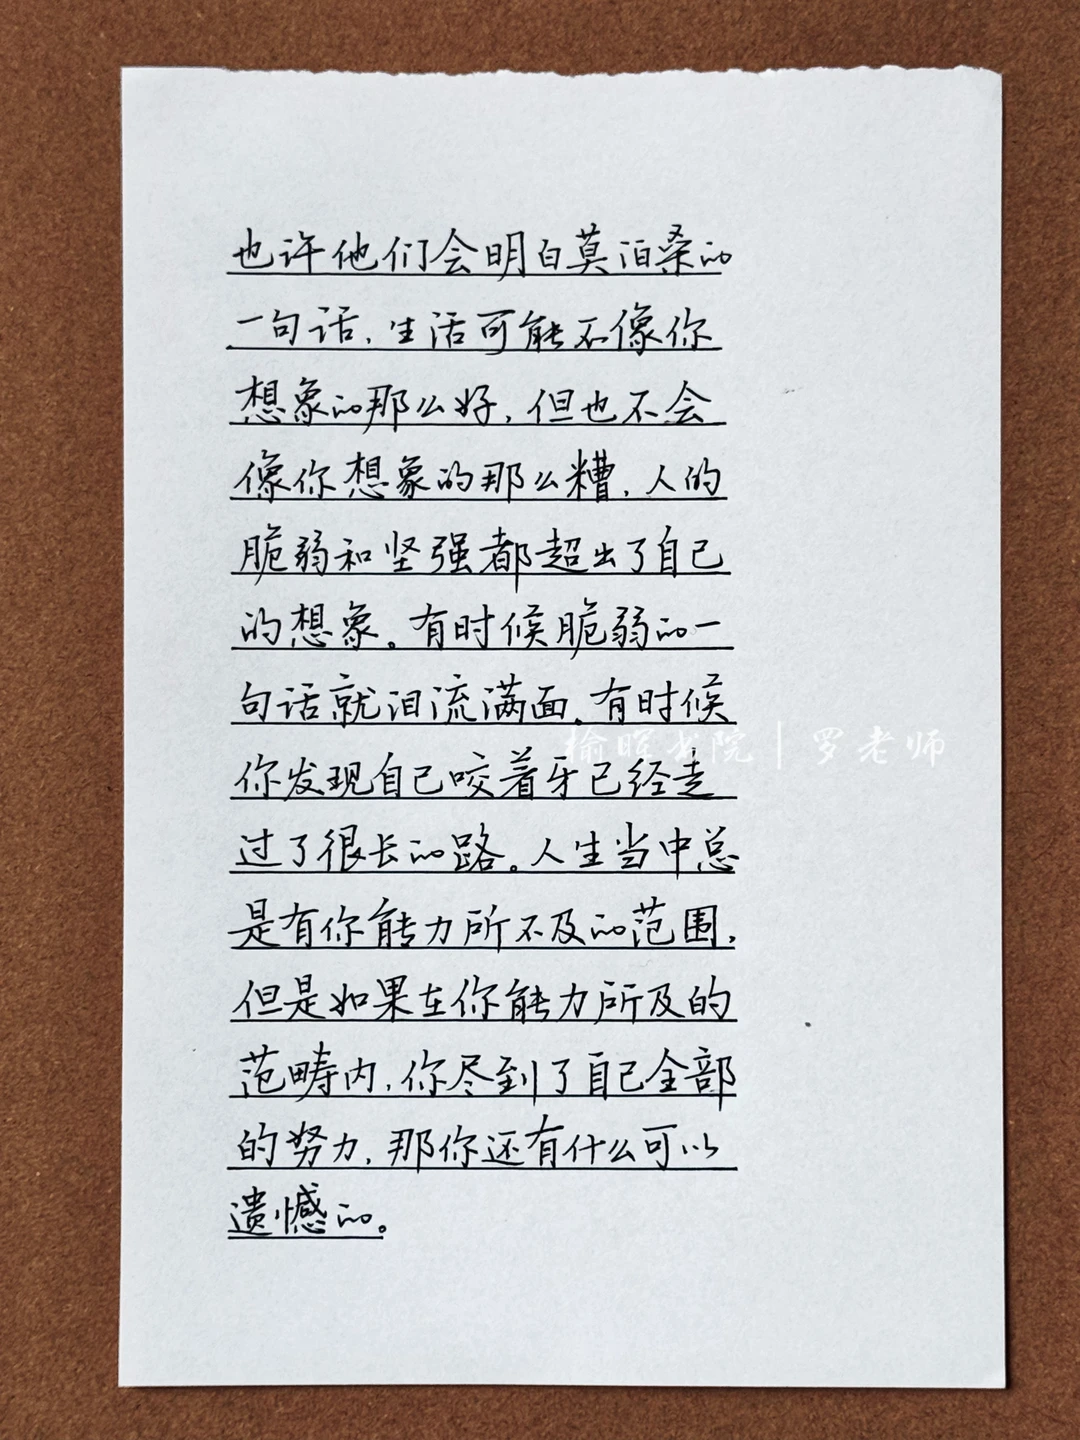 也许他们会明白莫泊桑的
一句话，生活可能不像你
想象的那么好，但也不会
像你想象的那么糟，人的
脆弱和坚强都超出了自己
的想象。有时候脆弱的一
句话就泪流满面。有时候
你发现自己咬着牙已经走
过了很长的路。人生当中总
是有你能力所不及的范围，
但是如果在你能力所及的
范畴内，你尽到了自己全部
的努力，那你还有什么可以
遗憾的。
榆晖书院｜罗老师